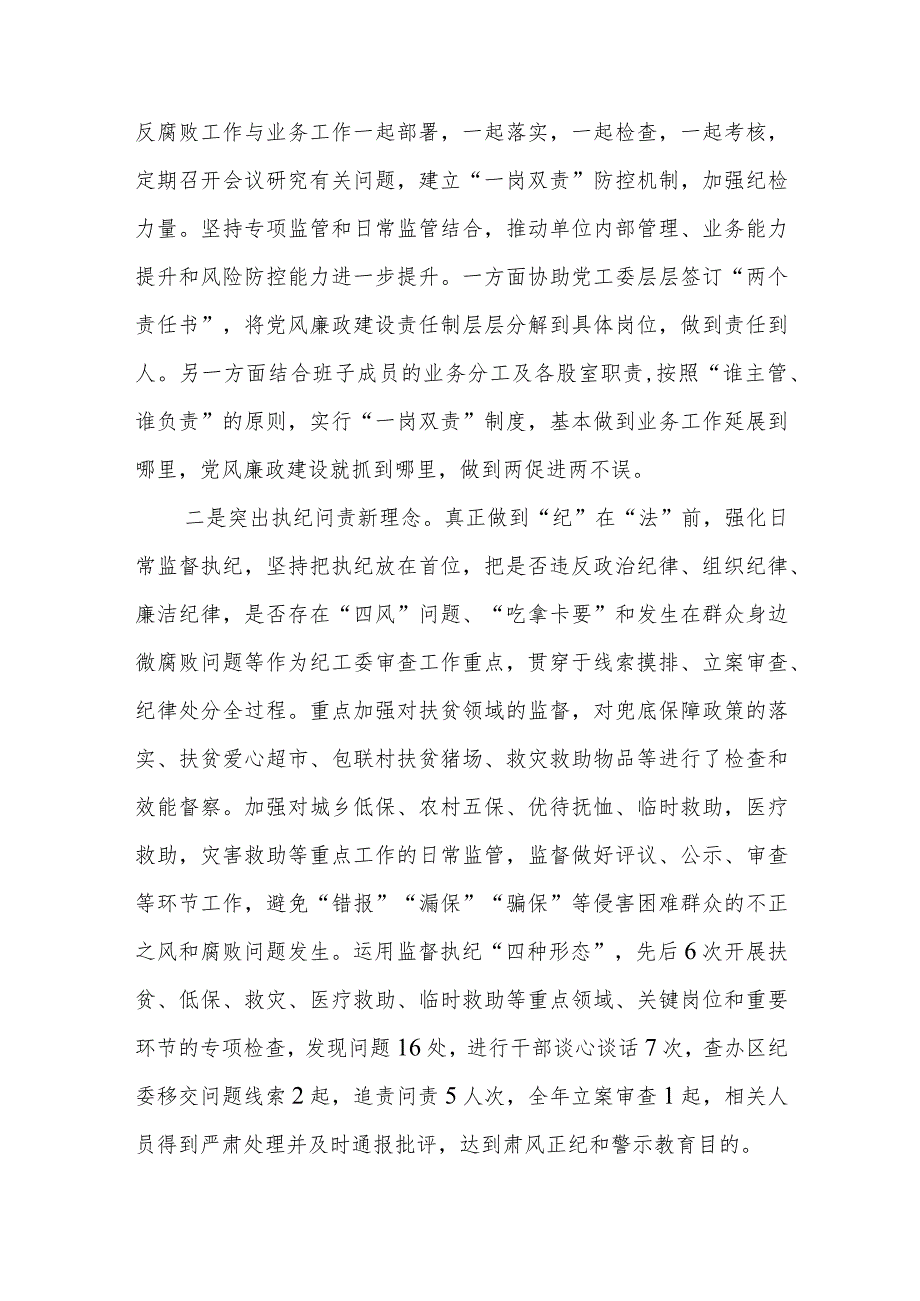 反腐败工作与业务工作一起部署，一起落实，一起检查，一起考核，
定期召开会议研究有关问题，建立“一岗双责”防控机制，加强纪检
力量。坚持专项监管和日常监管结合，推动单位内部管理、业务能力
提升和风险防控能力进一步提升。一方面协助党工委层层签订“两个
责任书”，将党风廉政建设责任制层层分解到具体岗位，做到责任到
人。另一方面结合班子成员的业务分工及各股室职责,按照“谁主管、
谁负责”的原则，实行“一岗双责”制度，基本做到业务工作延展到
哪里，党风廉政建设就抓到哪里，做到两促进两不误。
二是突出执纪问责新理念。真正做到“纪”在“法”前，强化日
常监督执纪，坚持把执纪放在首位，把是否违反政治纪律、组织纪律、
廉洁纪律，是否存在“四风”问题、“吃拿卡要”和发生在群众身边
微腐败问题等作为纪工委审查工作重点，贯穿于线索摸排、立案审查、
纪律处分全过程。重点加强对扶贫领域的监督，对兜底保障政策的落
实、扶贫爱心超市、包联村扶贫猪场、救灾救助物品等进行了检查和
效能督察。加强对城乡低保、农村五保、优待抚恤、临时救助，医疗
救助，灾害救助等重点工作的日常监管，监督做好评议、公示、审查
等环节工作，避免“错报”“漏保”“骗保”等侵害困难群众的不正
之风和腐败问题发生。运用监督执纪“四种形态”，先后6次开展扶
贫、低保、救灾、医疗救助、临时救助等重点领域、关键岗位和重要
环节的专项检查，发现问题16处，进行干部谈心谈话7次，查办区纪
委移交问题线索2起，追责问责5人次，全年立案审查1起，相关人
员得到严肃处理并及时通报批评，达到肃风正纪和警示教育目的。